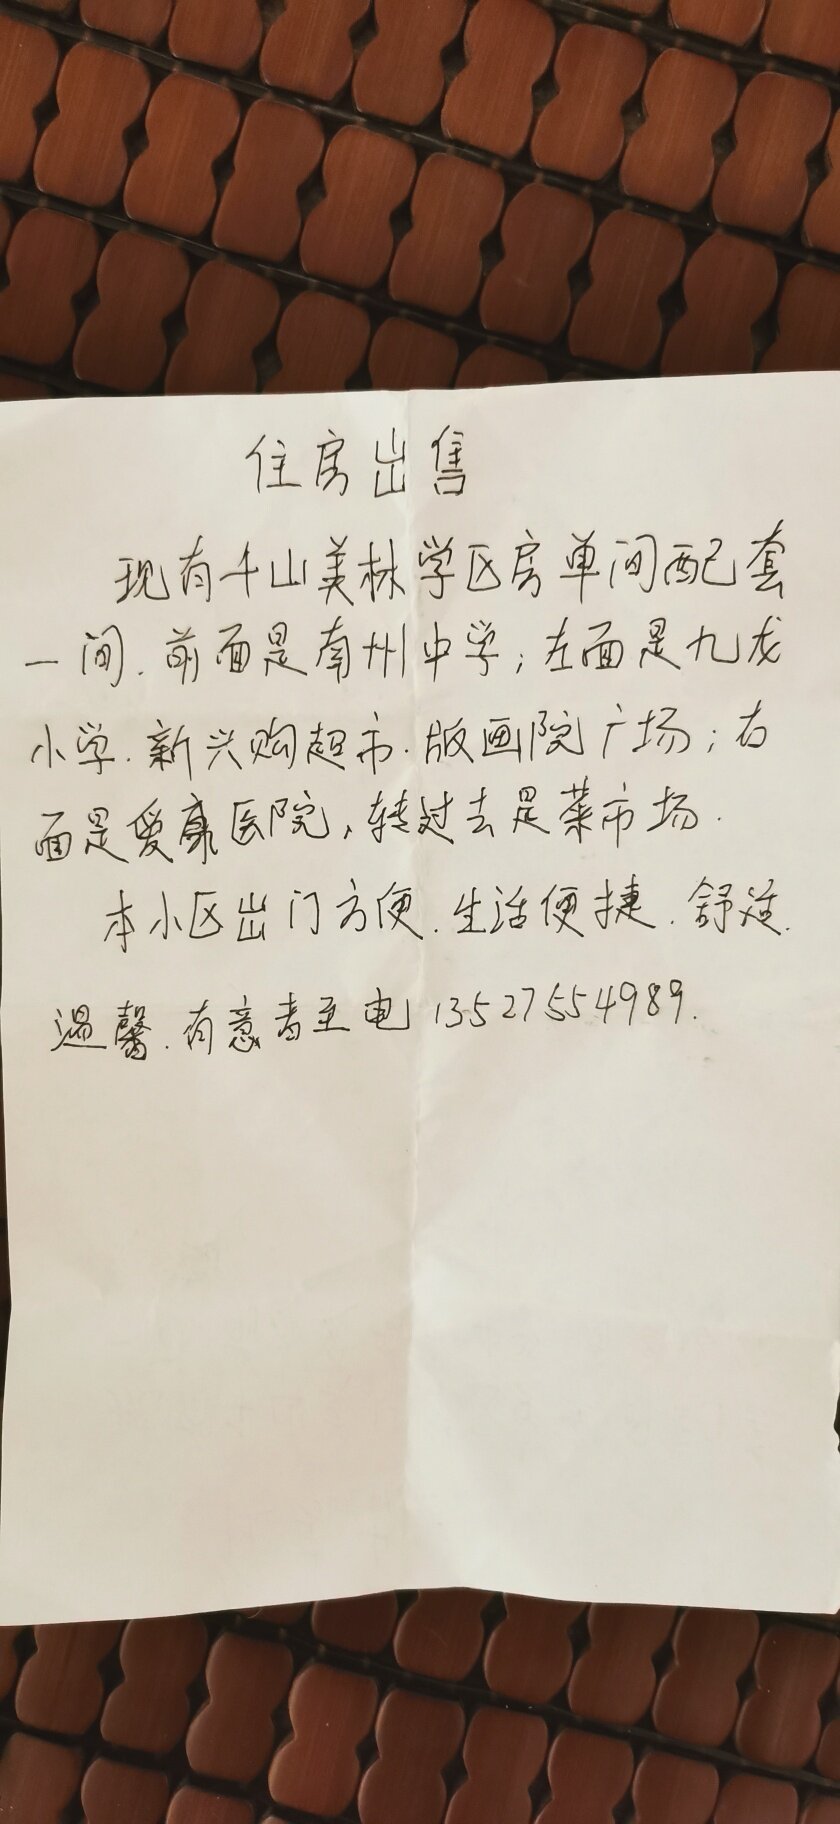 住房出售
现有千山美林学区房单间配套
一间.前面是南州中学;左面是九龙
小学.新兴购超市.版画院广场;右
面是爱康医院,转过去是菜市场.
本小区出门方便.生活便捷.舒适.
温馨.有意者至电13527554989.